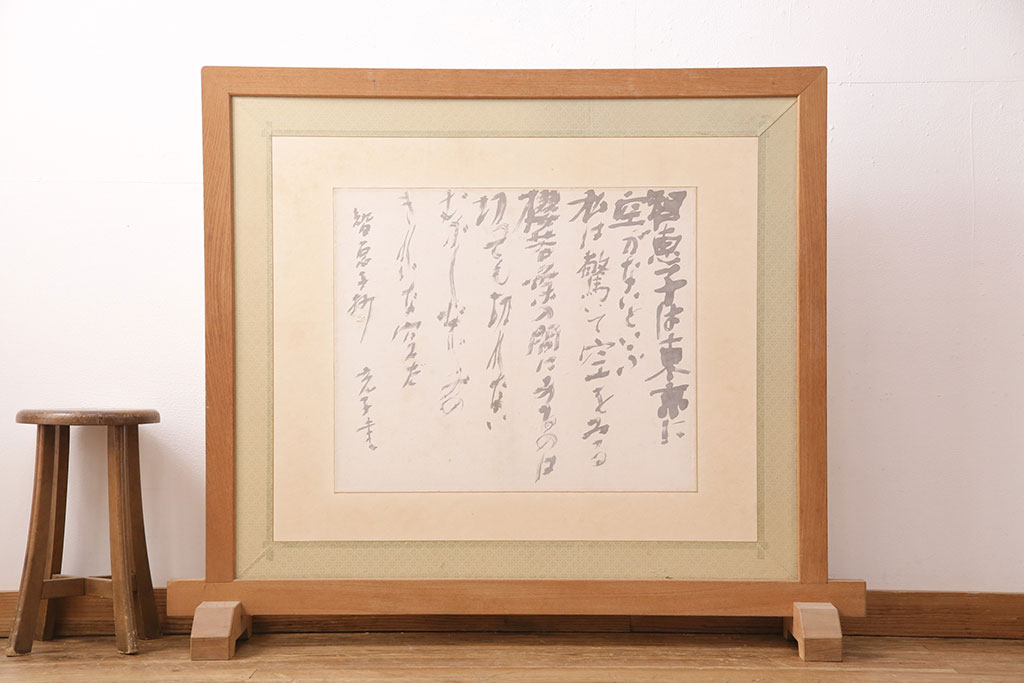 智恵子は東京に
空がないといふ
私は驚いて空をみる
櫻若葉の間にあるのは
切っても切れない
むかしなじみの
きれいな空だ
智恵子抄